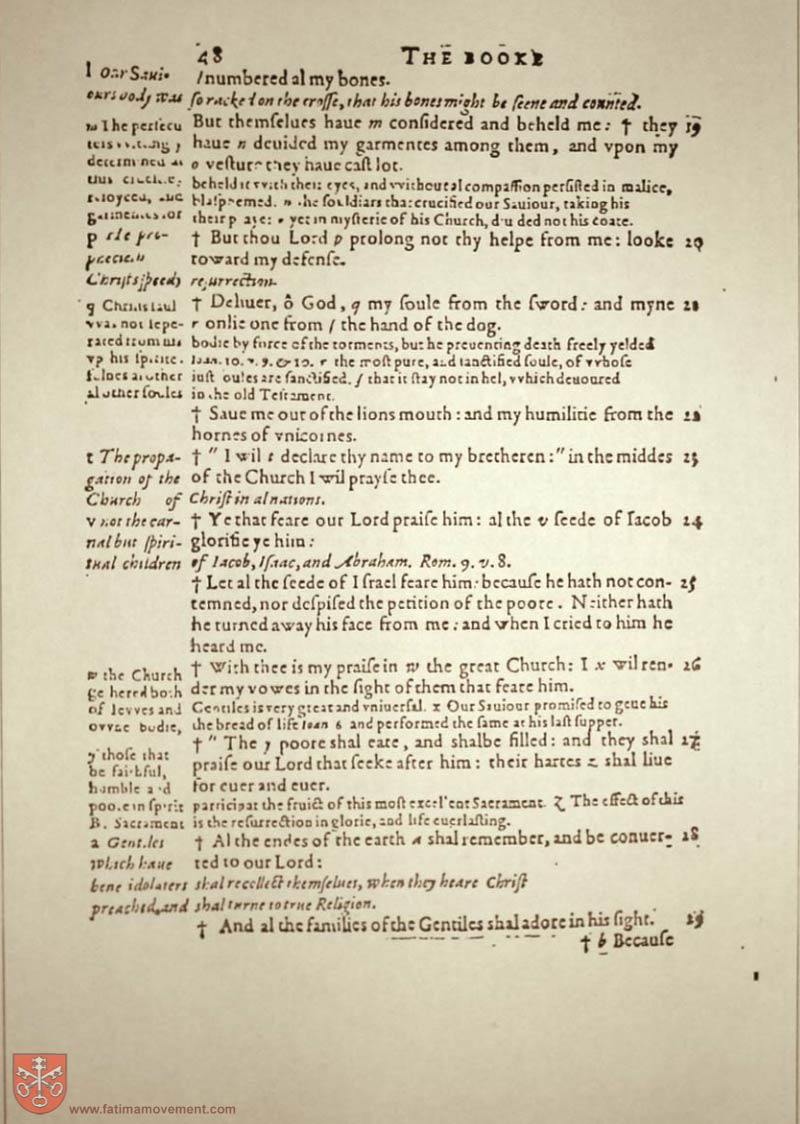 48 THE BOOKE
l Our Saui- l numbered al my bones.
ours body was so racked on the crosse, that his bones might be seene and counted.
But themselues haue m considered and beheld me: † they 19
haue n deuided my garmentes among them, and vpon my
o vesture they haue cast lot.
m The persecu
beheld it vvith their eyes, and vvithout al compassion persisted in malice,
blasphemed. n the souldiars that crucified our Sauiour, taking his
garmentes. or
their p aye: o yet in mysterie of his Church, diuided not his coate.
p
† But thou Lord p prolong not thy helpe from me: looke 20
toward my defense.
Christs speedy resurrection.
† Deliuer, ô God, q my soule from the sword: and myne 21
r onlie one from s the hand of the dog.
q Christs soul
vvas not sepe-
rated from his
vp his spirite.
bodie by force of the torments, but he preuenting death freely yelded
Ioan. 10. v. 9. & 10. r the most pure, and sanctified soule, of vvhose
al other soules
iust soules are sanctified. s that it stay not in hel, vvhich deuoured
in the old Testament.
† Saue me out of the lions mouth: and my humilitie from the 22
hornes of vnicornes.
† " I wil t declare thy name to my bretheren: " in the middes 23
of the Church I wil prayse thee.
t The propa-
gation of the
Church of Christ in al nations.
† Ye that feare our Lord praise him: al the v seede of Iacob 24
glorifie ye him:
v not the car-
nal but spiri-
tual children of Iacob, Isaac, and Abraham. Rom. 9. v. 8.
† Let al the seede of Israel feare him: because he hath not con- 25
temned, nor despised the petition of the poore. Neither hath
he turned away his face from me: and when I cried to him he
heard me.
† With thee is my praise in w the great Church: I x wil ren- 26
der my vowes in the sight of them that feare him.
w the Church
gethered both
of Ievves and
Gentiles is very great and vniuersal. x Our Sauiour promised to geue his
ovvne bodie, the bread of life Ioan 6 and performed the same at his last supper.
† " The y poore shal eate, and shalbe filled: and they shal 27
praise our Lord that seeke after him: their hartes z shal liue
for euer and euer.
y those that
be faithful,
humble and
poore in spirit participat the fruict of this most excellent Sacrament. z The effect of this
B. Sacrament is the resurrection in glorie, and life euerlasting.
† Al the endes of the earth a shal remember, and be conuer- 28
ted to our Lord:
a Gentiles
which haue
bene idolaters shal recollect themselues, when they heare Christ
preached, and shal turne to true Religion.
† And al the families of the Gentiles shal adore in his sight. 29
† b Because
www.fatimamovement.com